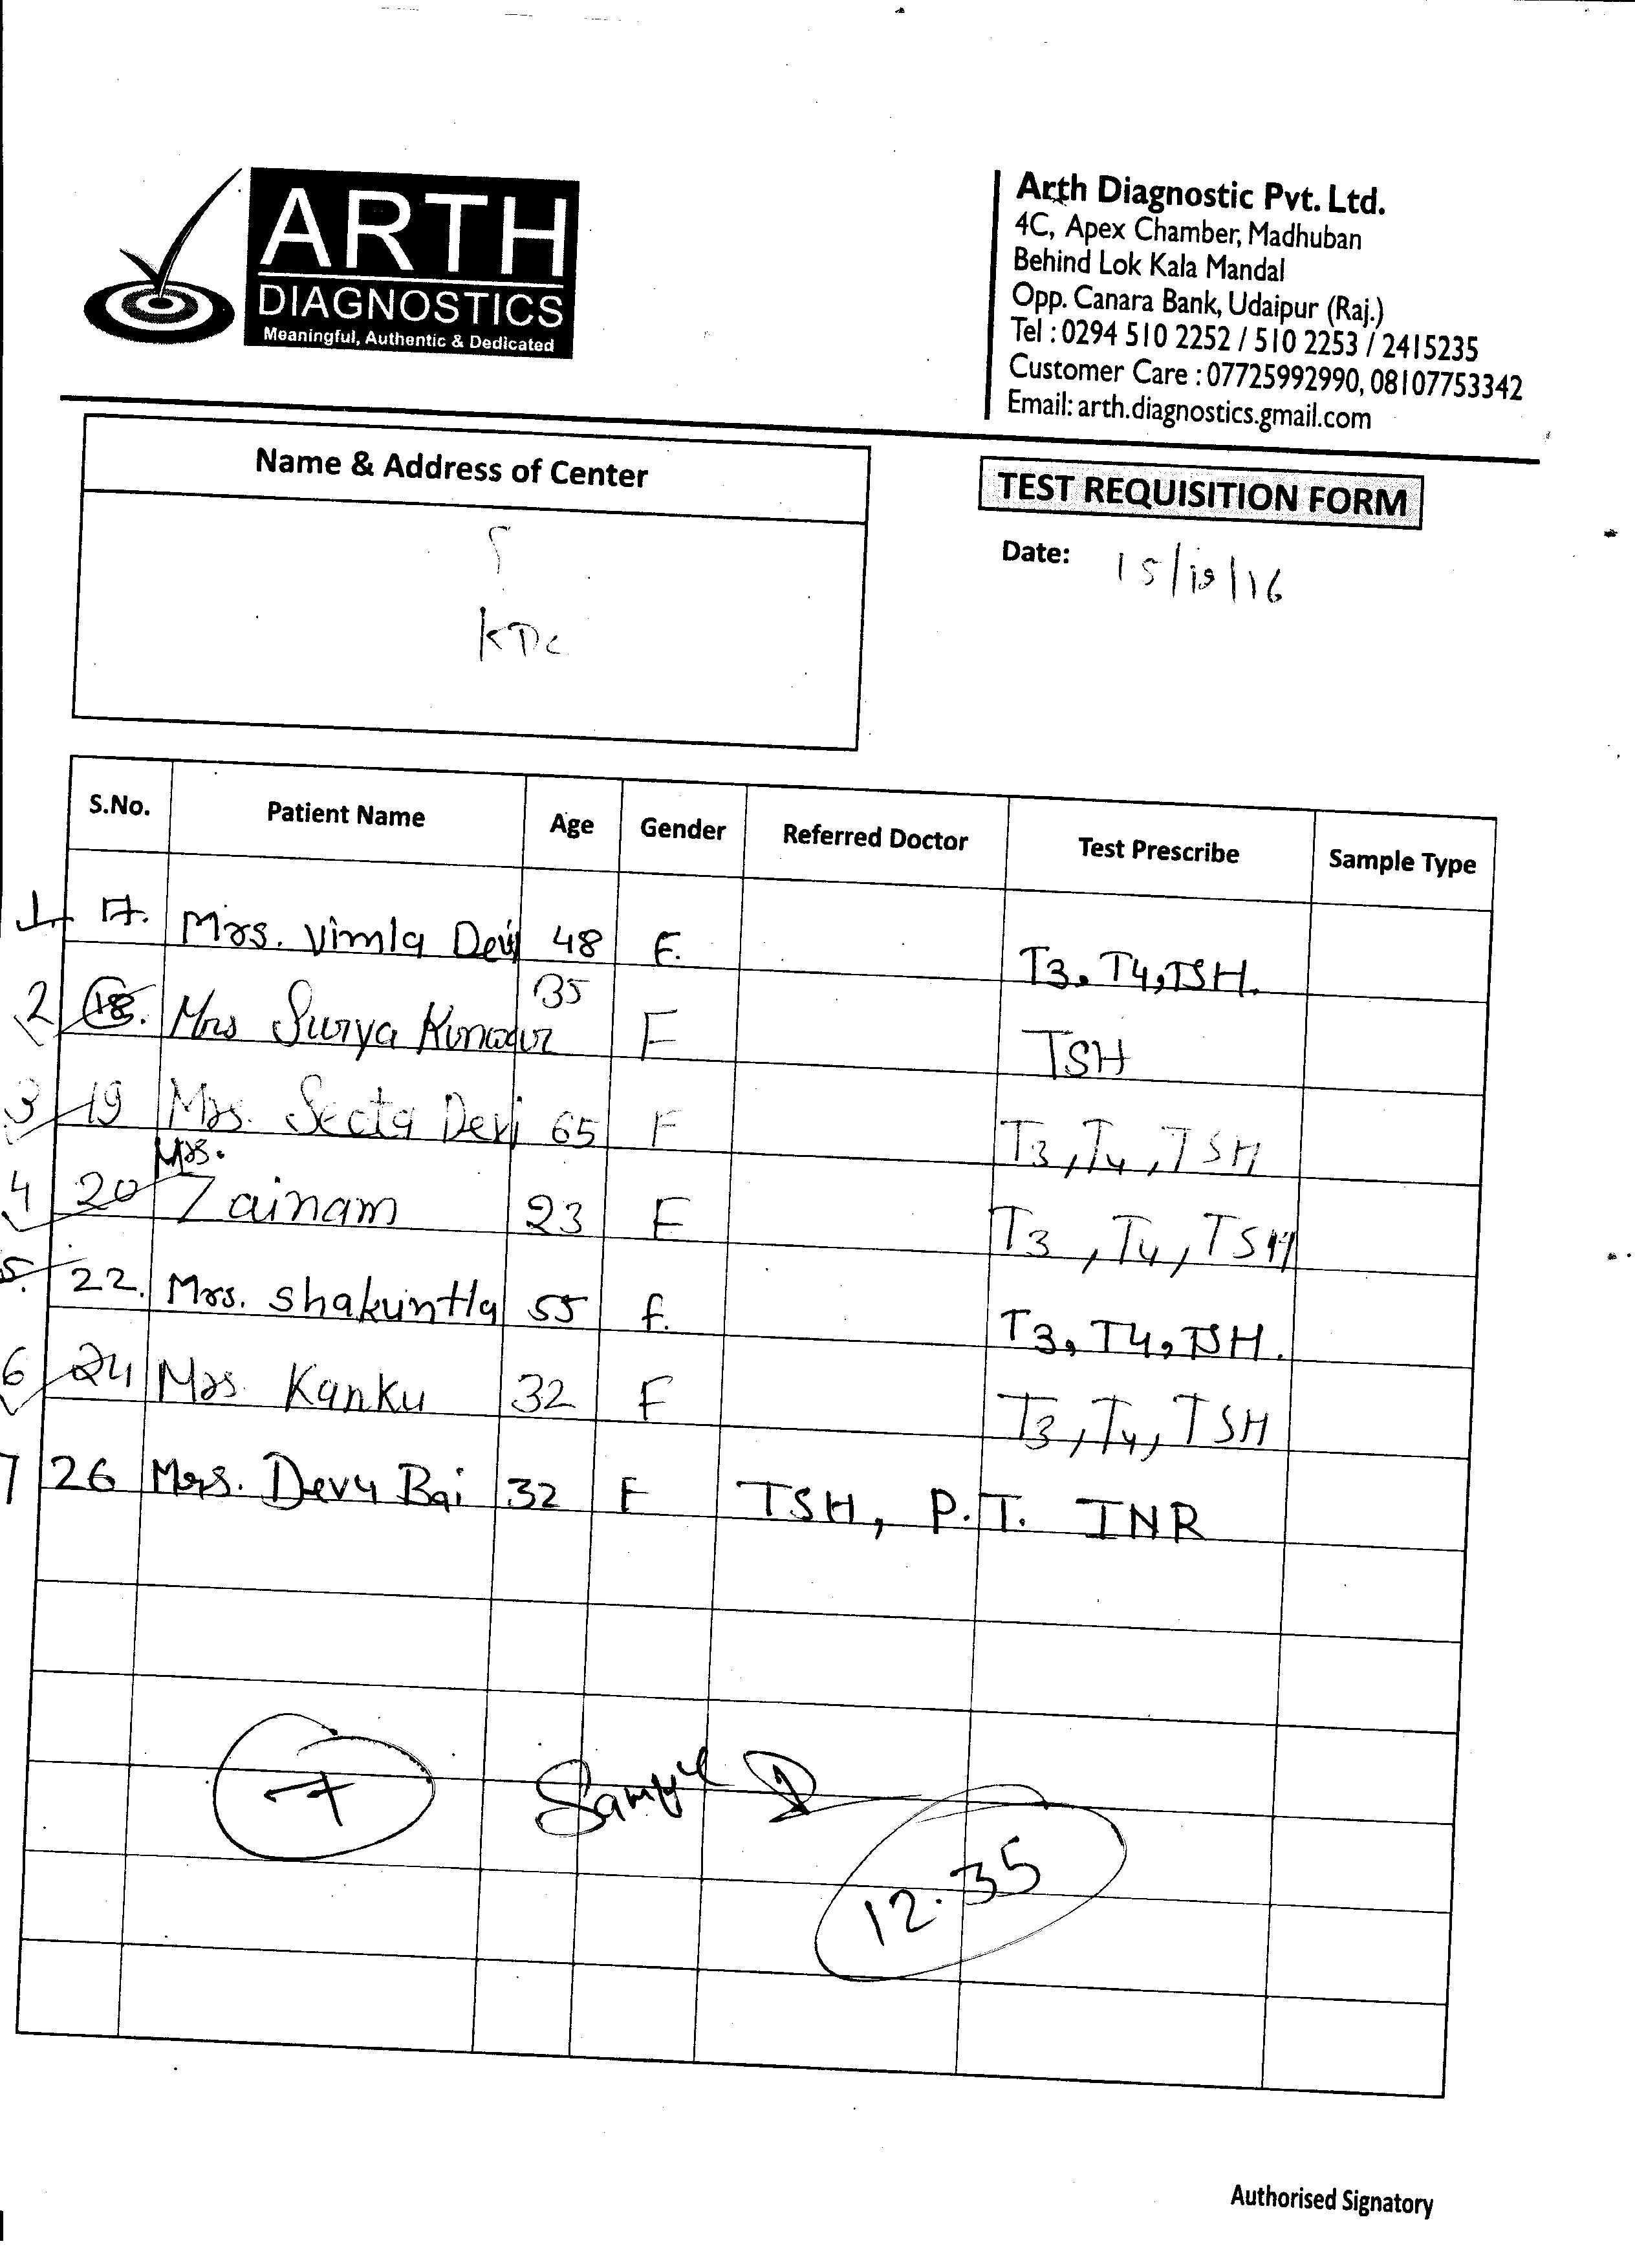 ARTH
DIAGNOSTICS
Meaningful, Authentic & Dedicated
Arth Diagnostic Pvt. Ltd.
4C, Apex Chamber, Madhuban
Behind Lok Kala Mandal
Opp. Canara Bank, Udaipur (Raj.)
Tel : 0294 510 2252 / 510 2253 / 2415235
Customer Care : 07725992990, 08107753342
Email: arth.diagnostics.gmail.com
Name & Address of Center
KDC
TEST REQUISITION FORM
Date: 15/10/16
S.No. Patient Name Age Gender Referred Doctor Test Prescribe Sample Type
1 17. Mrs. Vimla Devi 48 F. T3, T4, TSH.
2 18. Mrs Surya Kunwar 35 F TSH
3 19 Mrs. Seeta Devi 65 F T3, T4, TSH
4 20 Mrs. Zainam 23 F T3, T4, TSH
5. 22. Mrs. Shakuntla 55 f. T3, T4, TSH.
6 24 Mrs. Kanku 32 F T3, T4, TSH
7 26 Mrs. Devu Bai 32 F TSH, P.T. INR
7 Sample
12.35
Authorised Signatory